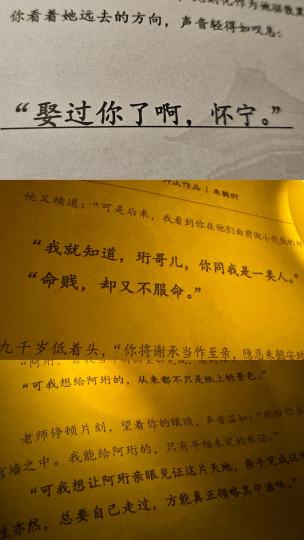 你看着她远去的方向，声音轻得如叹息：
“娶过你了啊，怀宁。”
师生作品｜朱鹤昕
他又续道：“可是后来，我看到你在他们面前做小伏低的
“我就知道，珩哥儿，你同我是一类人。”
“命贱，却又不服命。”
九千岁低着头，“你将谢承当作至亲，隐忍朱鹤安
“可我想给阿珩的，从来都不只是纸上的景色。”
老师停顿片刻，望着你的眼睛，声音温和：
宫墙之中。我能给阿珩的，只有半幅未完的承诺。”
“可我想让阿珩亲眼见证这片天地，亲手完成这
生亦然，总要自己走过，方能真正领略其中滋味。”